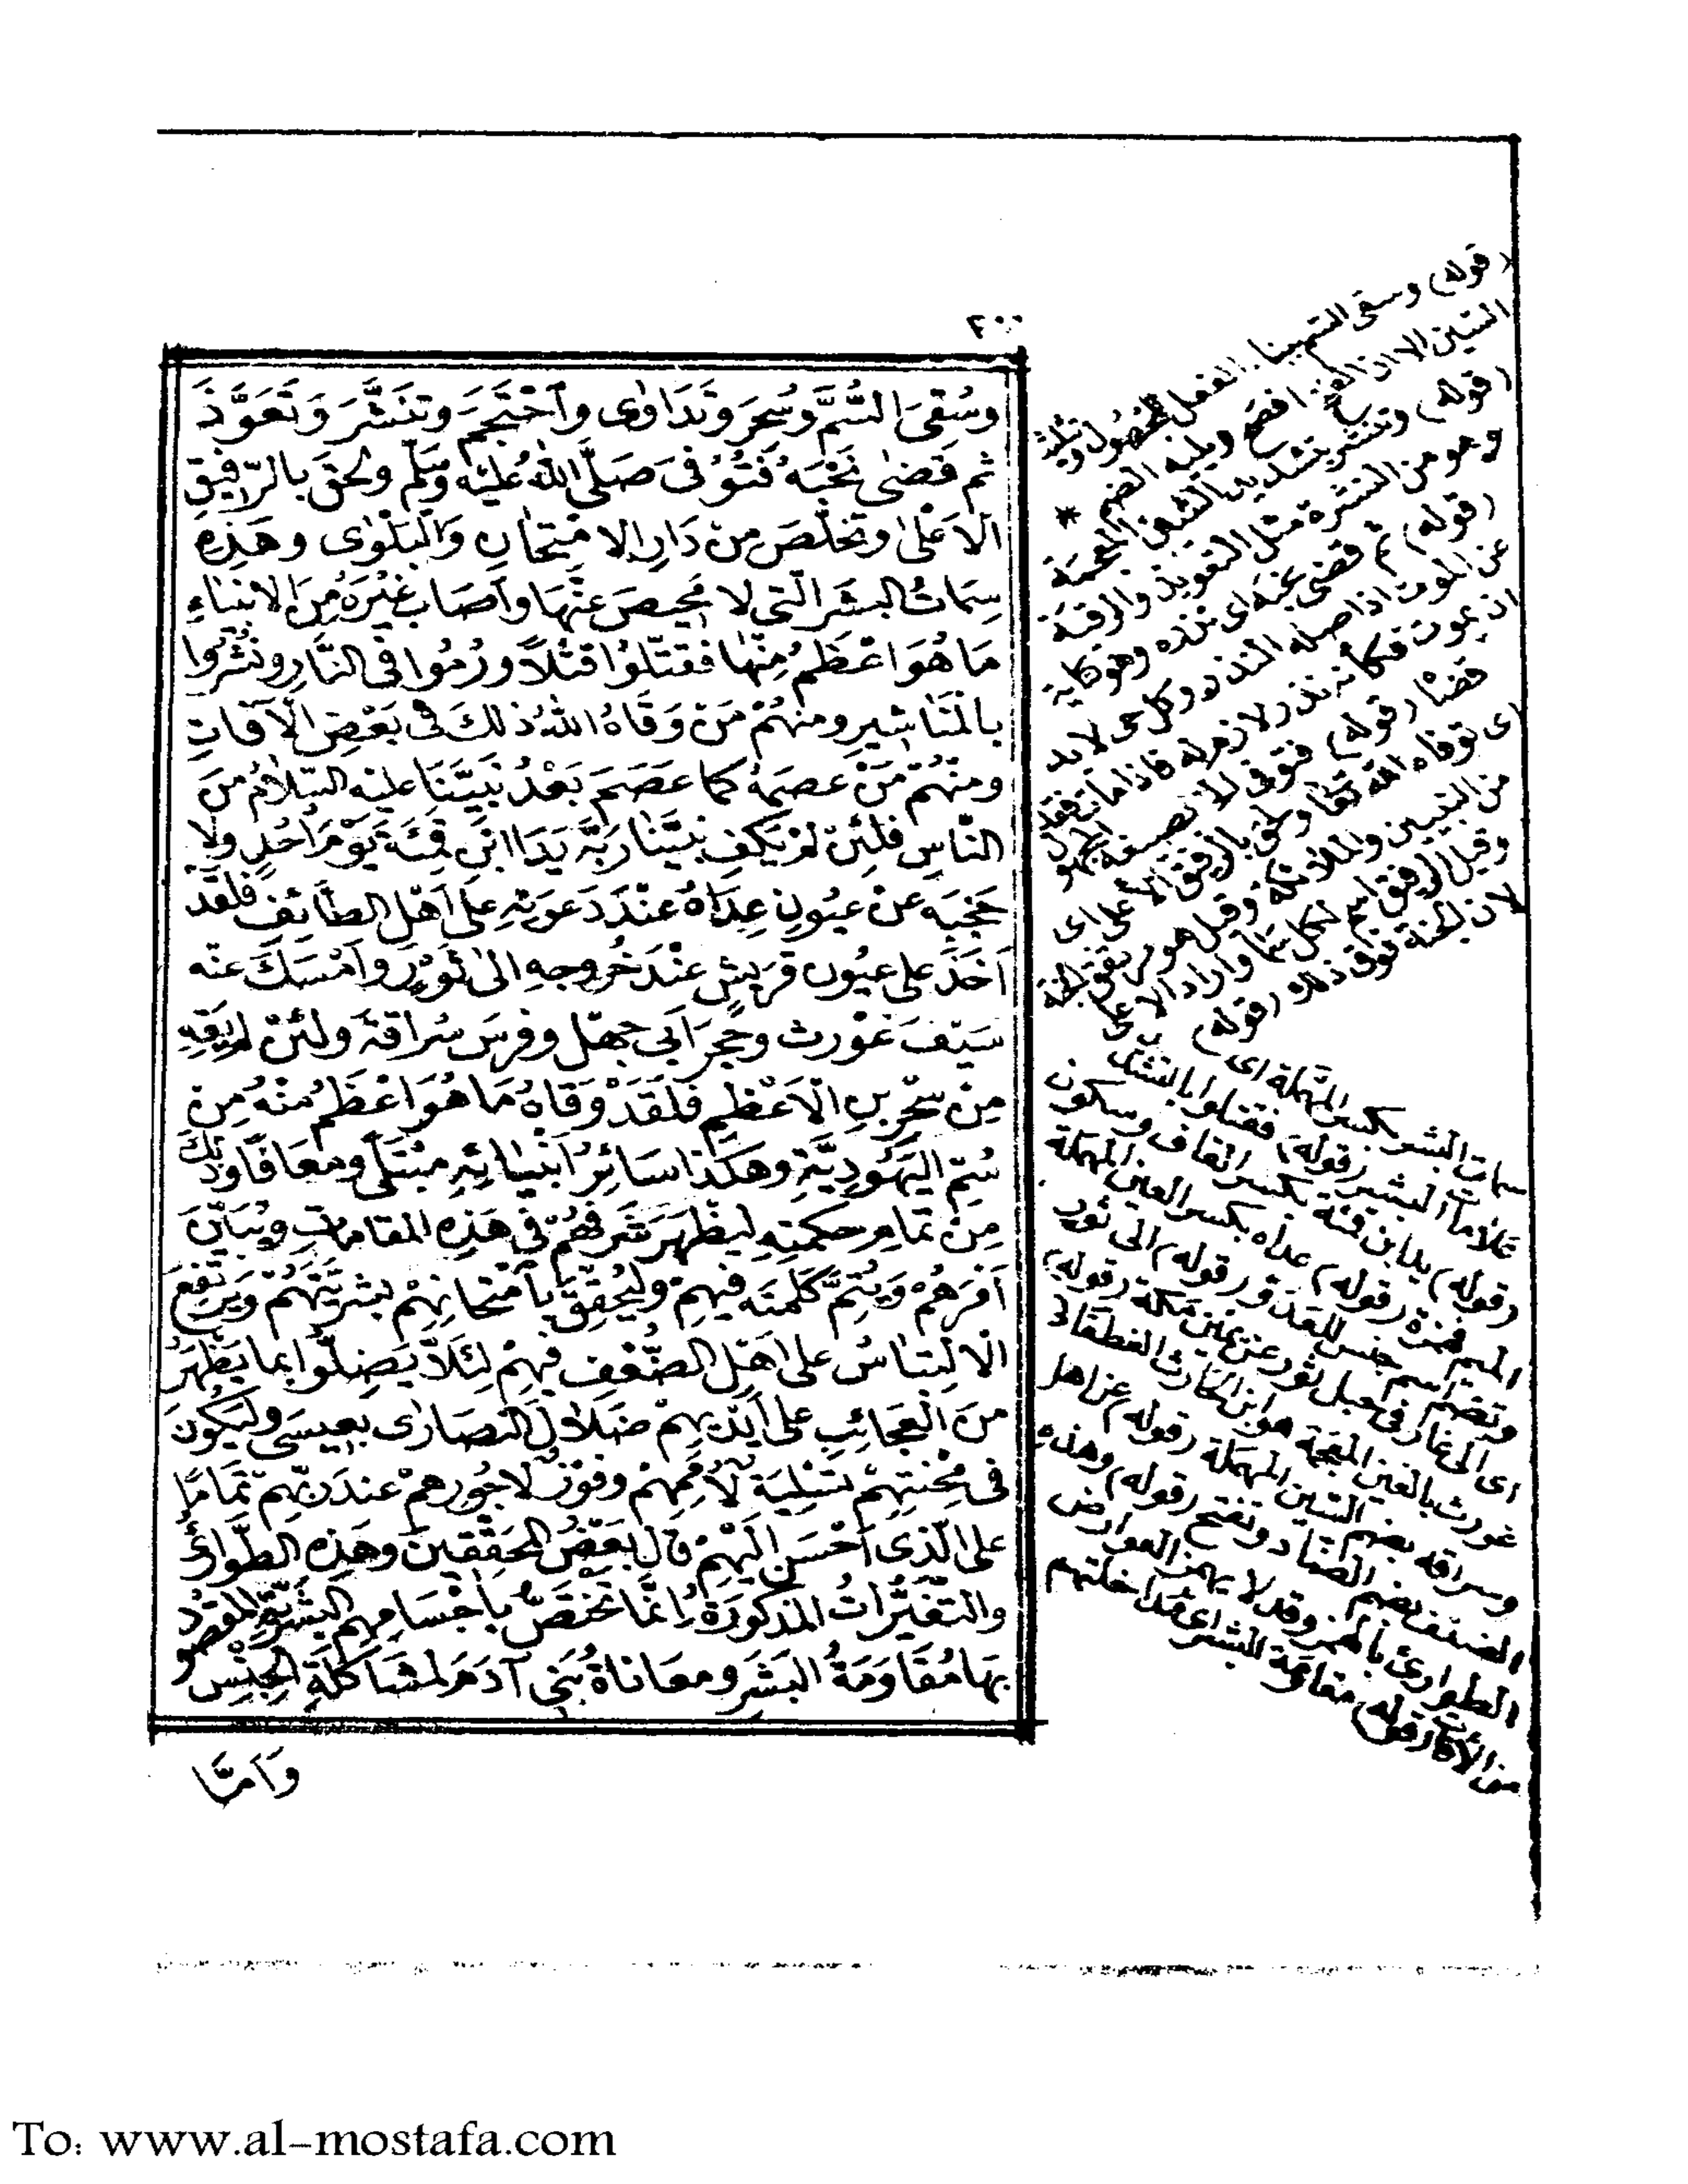 ٢٠٠
وَسُقِىَ السُّمَّ وَسُحِرَ وَتَدَاوٰى وَاَحْتَجَمَ وَتَنَشَّرَ وَتَعَوَّذَ
ثم قَضٰى نَحْبَهُ فَتُوُفِّىَ صَلَّى اللّٰهُ عَلَيْهِ وَسَلَّمَ وَلَحِقَ بِالرَّفِيقِ
الْاَعْلٰى وتَخَلَّصَ مِنْ دَارِ الامْتِحَانِ وَالْبَلْوٰى وهَذِهِ
سِمَاتُ البَشَرِ الَّتِى لا مَحِيصَ عَنْهَا وَاَصَابَ غَيْرَهُ مِنَ الانبْيَاءِ
مَا هُوَ اَعْظَمُ مِنْهَا فَقُتِّلُوا قَتْلًا وَرُمُوا فِى النَّارِ وَنُشِرُوا
بالْمَنَاشِيرِ وَمِنْهُمْ مَنْ وَقَاهُ اللّٰهُ ذٰلِكَ فِى بَعْضِ الْآفَاتِ
وَمِنْهُمْ مَنْ عَصَمَهُ كما عَصَمَ بَعْدُ نَبِيَّنَا عليْهِ السَّلَامُ مِنَ
النَّاسِ فَلَئِنْ لَمْ يَكْفِ نَبِيَّنَا رَبُّهُ يَدَ ابْنِ قَمِئَةَ يَوْمَ اُحُدٍ وَلَا
حَجَبَهُ عَنْ عيُونِ عِدَاهُ عِنْدَ دَعْوَتِهِ عَلَى اَهْلِ الطَّائِفِ فَلَقَدْ
اَخَذَ على عيُونِ قُرَيْشٍ عِنْدَ خُرُوجِهِ الى ثَوْرٍ وَاَمْسَكَ عنْه
سَيْفَ غَوْرث وحَجَرَ اَبِى جَهْلٍ وفرَسَ سُرَاقةَ وَلَئِنْ لَمْ يَقِهِ
مِنْ سِحْرِ بنِ الْاَعْظَمِ فَلَقَدْ وَقَاهُ مَا هُوَ اَعْظَمُ مِنْهُ مِنْ
سُمِّ اليَهُودِيَّةِ وهَكَذَا سَائِرُ اَنْبِيَائِهِ مُبْتَلًى ومُعَافًى وَذلِكَ
مِنْ تَمَامِ حِكْمَتِهِ لِيُظْهِرَ شَرَفَهُمْ فى هَذِهِ المقَامَاتِ ويُبَيِّنَ
اَمْرَهُمْ وَيُتِمَّ كَلِمَتَه فِيهِمْ وَليُحَقِّقَ بِاْمْتِحَانِهِمْ بَشَرِيَّتَهُمْ وَيَرْتَفِعَ
الْالتِبَاسُ على اَهْلِ الضُّعْفِ فِيهِمْ لِئَلَّا يَضِلُّوا بِمَا يَظْهَرُ
مِنَ الْعَجَائِبِ على اَيْدِيهِمْ ضَلَالَ النَّصَارَى بِعِيسَى وَلِيَكُونَ
فى مِحْنَتِهِمْ تَسْلِيَة لِأُمَمِهِمْ وَفُورٌ لِأُجُورِهِمْ عِنْدَ رَبِّهِمْ تَمَامًا
عَلَى الَّذِى اَحْسَنَ اِلَيْهِمْ قالَ بَعْضُ المحَقِّقِينَ وَهَذِهِ الطَّوَارِئُ
والتَّغَيُّرَاتُ المَذكُورَةُ اِنَّمَا تَخْتَصُّ بِاَجْسَامِهِمِ البَشَرِيَّةِ المقصُودِ
بِهَا مُقَاوَمَةُ البَشَرِ ومعَانَاةُ بَنِى آدَمَ لمشَاكَلَةِ الجِنْسِ
وَاَمَّا
(قوله) وسقى السم ببناء الفعل للمجهول وتثليث
السين الا ان الفتح افصح ويليه الضم *
(قوله) وتنشر بتشديد الشين المعجمة
وهو من النشرة مثل التعويذ والرقية
(قوله) ثم قضى نحبه اى نذره وهو كناية
عن الموت اذ اصله النذر وكل حى لا بد
ان يموت فكأنه نذر لازم له فاذا مات فقد
قضاه (قوله) فتوفى بصيغة المجهول
اى توفاه الله تعالى ولحق بالرفيق الاعلى اى
من النبيين والملائكة وقيل هو مرتفق الجنة
وقيل الرفيق اسم لكل سماء واراد الاعلى
لان الجنة فوق ذلك (قوله)
سمات البشر بكسر المهملة اى
علامات البشر (قوله) فقتلوا بالتشديد
(قوله) يد ابن قمئة بكسر القاف وسكون
الميم فهمزة (قوله) عداه بكسر العين المهملة
وتضم اسم جنس للعدو (قوله) الى ثور
اى الى غار فى جبل ثور عن يمين مكة (قوله)
غورث بالغين المعجمة هو ابن الحارث الغطفانى
وسراقه بضم السين المهملة (قوله) عن اهل
الضعف بضم الضاد وتفتح (قوله) وهذه
الطوارئ بالهمز وقد لا يهمز العوارض
من الآفات (قوله) مقاومة البشر اى مداخلتهم
To: www.al-mostafa.com